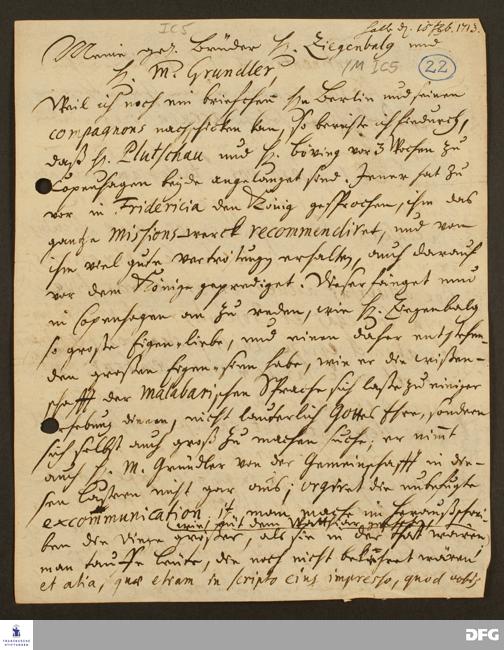 IC5
Halb. d. 15 Feb. 1713.
Meine gel. Brüder H. Ziegenbalg und
H. M. Grundler,
/M IC5
22
Weil ich noch ein briefchen Hn Berlin und seinen
compagnons nachschicken kan, so berichte ich hiedurch,
daß H. Plutschau und H. Böving vor 3 Wochen zu
Copenhagen beyde angelanget sind. Jener hat zu
vor in Fridericia den König gesprochen, ihm das
gantze missions-werck recommendiret, und von
ihm viel gute vertröstungen erhalten, auch darauf
vor dem Könige geprediget. Dieser fänget nun
in Copenhagen an zu reden, wie H. Ziegenbalg
so große Eigen-liebe, und einen daher entstehen-
den großen Eigen-sinn habe, wie er die wissen-
schafft der Malabarischen Sprache sich laße zu einiger
erhebung dienen, nicht lauterlich Gottes Ehre, sondern
sich selbst auch groß zu machen suche; er nimt
auch H. M. Gründler von der Gemeinschafft in die-
sen Lastern nicht gar aus; urgiret die unbefugte
excommunication, it. man mache im heraußschrei-
ben die Dinge größer, als sie in der That wären,
man tauffe Leute, die noch nicht bekehret wären
et alia, quæ etiam in scripto ejus impresso, quod vobis
FRANCKESCHE STIFTUNGEN
DFG